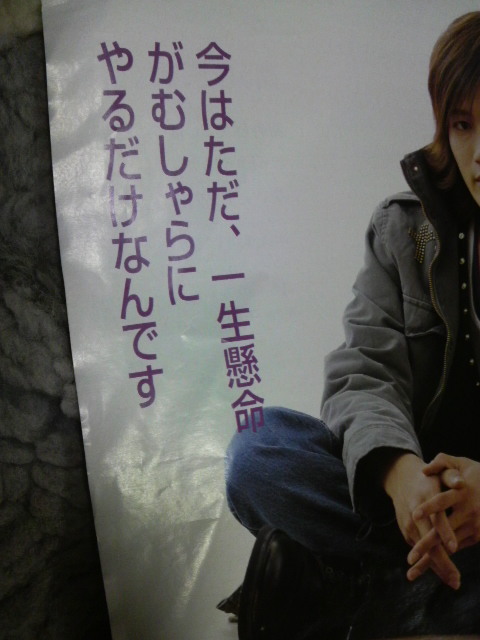 今はただ、一生懸命
がむしゃらに
やるだけなんです